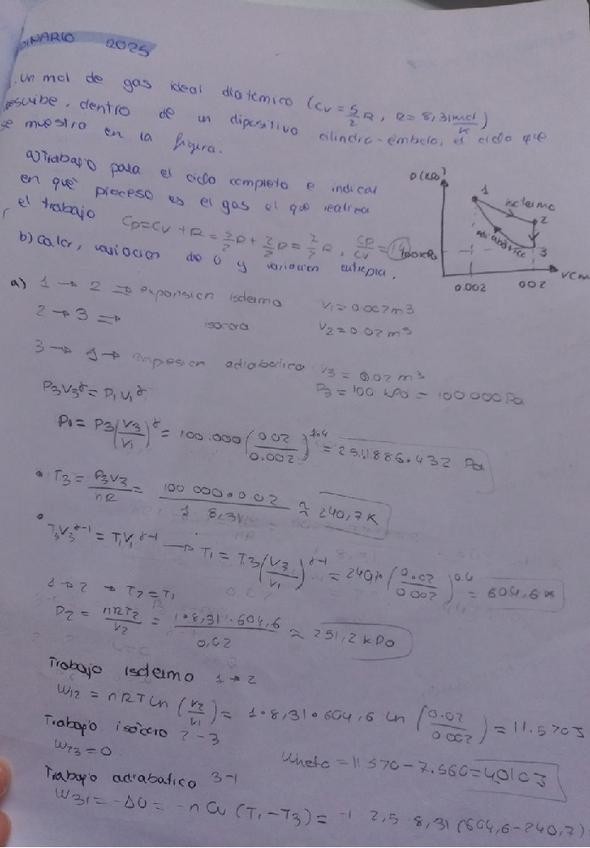 DINARIO 2025
un mol de gas ideal diatómico (Cv = 5/2 R, R = 8,31 mol/K)
describe, dentro de un dipositivo cilindro-émbolo, el ciclo que
se muestra en la figura.
a) Trabajo para el ciclo completo e indicar
en qué proceso es el gas el que realiza
el trabajo
Cp = Cv + R = 5/2 R + 2/2 R = 7/2 R, Cp/Cv =
b) calor, variacion de U y variacion entropia.
1
isotermo
2
adiabática
3
100 kPa
0.002
0.02
a) 1 → 2 ⇒ expansion isotermo V1 = 0.002 m3
2 → 3 ⇒ isocora V2 = 0.02 m3
3 → 1 → adiabatica V3 = 0,02 m3
P3V3^γ = P1V1^γ P3 = 100 kPa = 100 000 Pa
P1 = P3 (V3/V1)^γ = 100.000 (0.02/0.002)^1.4 = 2511886.432 Pa
• T3 = P3V3/nR = 100 000 • 0.02 / 1 8,31 ≈ 240,7 K
• T3V3^γ-1 = T1V1^γ-1 → T1 = T3 (V3/V1)^γ-1 = 240,7 (0.02/0.002)^0.4 = 604,6 K
1 → 2 → T2 = T1
P2 = nRT2/V2 = 1•8,31•604,6 / 0,02 ≈ 251,2 kPa
Trabajo isotermo 1 → 2
W12 = nRT Ln (V2/V1) = 1•8,31•604,6 Ln (0.02/0.002) = 11.570 J
Trabajo isócoro 2 - 3
W23 = 0
Wneto = 11 570 - 7.560 = 4010 J
Trabajo adiabatico 3-1
W31 = -ΔU = -n Cv (T1 - T3) = -1 2,5 8,31 (604,6 - 240,7)